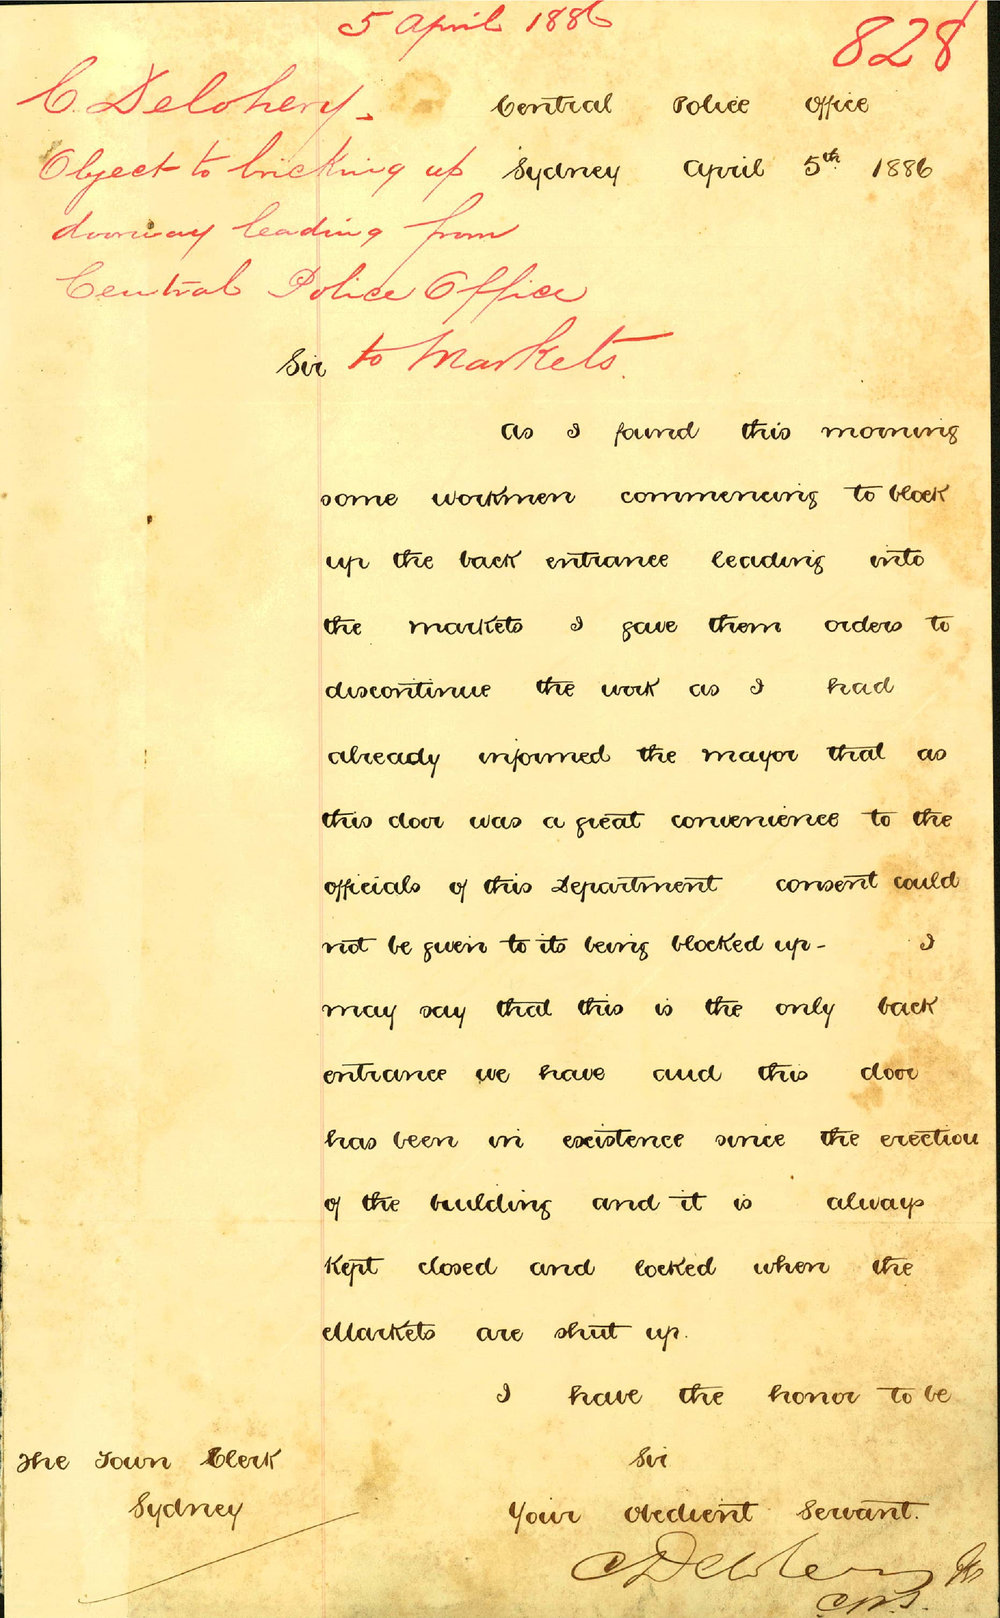 5 April 1886
828
C. Delohery.
Object to bricking up
doorway leading from
Central Police Office
to Markets.
Central Police Office
Sydney April 5th 1886
Sir
As I found this morning
some workmen commencing to block
up the back entrance leading into
the markets I gave them orders to
discontinue the work as I had
already informed the mayor that as
this door was a great convenience to the
officials of this Department consent could
not be given to its being blocked up - I
may say that this is the only back
entrance we have and this door
has been in existence since the erection
of the building and it is always
kept closed and locked when the
Markets are shut up.
I have the honor to be
Sir
Your obedient Servant.
C Delohery
The Town Clerk
Sydney